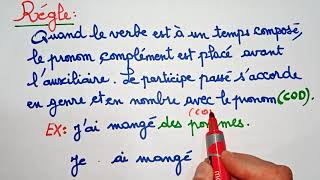 Régle:
Quand le verbe est à un temps composé,
le pronom complément est placé avant
l'auxiliaire. Le participe passé s'accorde
en genre et en nombre avec le pronom (COD).
(CO
EX: j'ai mangé des pommes.
Je ai mangé